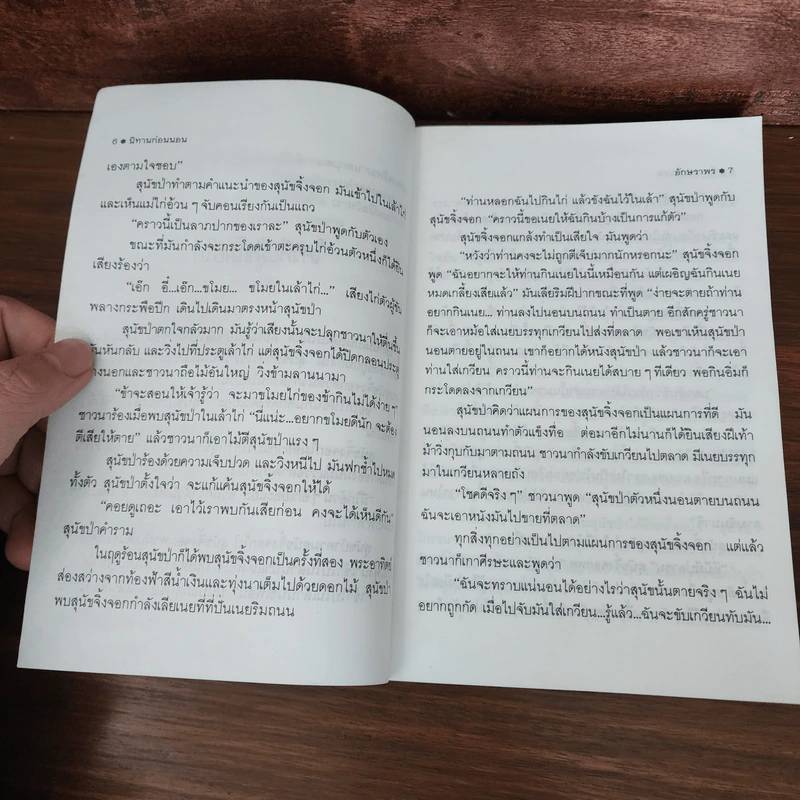 6 ● นิทานก่อนนอน
เองตามใจชอบ”
สุนัขป่าทำตามคำแนะนำของสุนัขจิ้งจอก มันเข้าไปในเล้าไก่
และเห็นแม่ไก่อ้วน ๆ จับคอนเรียงกันเป็นแถว
“คราวนี้เป็นลาภปากของเราละ” สุนัขป่าพูดกับตัวเอง
ขณะที่มันกำลังจะกระโดดเข้าตะครุบไก่อ้วนตัวหนึ่งก็ได้ยิน
เสียงร้องว่า
“เอ๊ก อี๋...เอ๊ก...ขโมย... ขโมยในเล้าไก่...” เสียงไก่ตัวผู้ขัน
พลางกระพือปีก เดินไปเดินมาตรงหน้าสุนัขป่า
สุนัขป่าตกใจกลัวมาก มันรู้ว่าเสียงนั้นจะปลุกชาวนาให้ตื่นขึ้น
มันหันกลับ และวิ่งไปที่ประตูเล้าไก่ แต่สุนัขจิ้งจอกได้ปิดกลอนประตู
ข้างนอกและชาวนาถือไม้อันใหญ่ วิ่งข้ามลานนามา
“ข้าจะสอนให้เจ้ารู้ว่า จะมาขโมยไก่ของข้ากินไม่ได้ง่าย ๆ”
ชาวนาร้องเมื่อพบสุนัขป่าในเล้าไก่ “นี่แน่ะ...อยากขโมยดีนัก จะต้อง
ตีเสียให้ตาย” แล้วชาวนาก็เอาไม้ตีสุนัขป่าแรง ๆ
สุนัขป่าร้องด้วยความเจ็บปวด และวิ่งหนีไป มันฟกช้ำไปหมด
ทั้งตัว สุนัขป่าตั้งใจว่า จะแก้แค้นสุนัขจิ้งจอกให้ได้
“คอยดูเถอะ เอาไว้เราพบกันเสียก่อน คงจะได้เห็นดีกัน”
สุนัขป่าคำราม
ในฤดูร้อนสุนัขป่าก็ได้พบสุนัขจิ้งจอกเป็นครั้งที่สอง พระอาทิตย์
ส่องสว่างจากท้องฟ้าสีน้ำเงินและทุ่งนาเต็มไปด้วยดอกไม้ สุนัขป่า
พบสุนัขจิ้งจอกกำลังเลียเนยที่ที่ปั่นเนยริมถนน
อักษราพร ● 7
“ท่านหลอกฉันไปกินไก่ แล้วขังฉันไว้ในเล้า” สุนัขป่าพูดกับ
สุนัขจิ้งจอก “คราวนี้ขอเนยให้ฉันกินบ้างเป็นการแก้ตัว”
สุนัขจิ้งจอกแกล้งทำเป็นเสียใจ มันพูดว่า
“หวังว่าท่านคงจะไม่ถูกตีเจ็บมากนักหรอกนะ” สุนัขจิ้งจอก
พูด “ฉันอยากจะให้ท่านกินเนยในนี้เหมือนกัน แต่เผอิญฉันกินเนย
หมดเกลี้ยงเสียแล้ว” มันเลียริมฝีปากขณะที่พูด “ง่ายจะตายถ้าท่าน
อยากกินเนย... ท่านลงไปนอนบนถนน ทำเป็นตาย อีกสักครู่ชาวนา
ก็จะเอาหม้อใส่เนยบรรทุกเกวียนไปส่งที่ตลาด พอเขาเห็นสุนัขป่า
นอนตายอยู่ในถนน เขาก็อยากได้หนังสุนัขป่า แล้วชาวนาก็จะเอา
ท่านใส่เกวียน คราวนี้ท่านจะกินเนยได้สบาย ๆ ทีเดียว พอกินอิ่มก็
กระโดดลงจากเกวียน”
สุนัขป่าคิดว่าแผนการของสุนัขจิ้งจอกเป็นแผนการที่ดี มัน
นอนลงบนถนนทำตัวแข็งทื่อ ต่อมาอีกไม่นานก็ได้ยินเสียงฝีเท้า
ม้าวิ่งกุบกับมาตามถนน ชาวนากำลังขับเกวียนไปตลาด มีเนยบรรทุก
มาในเกวียนหลายถัง
“โชคดีจริง ๆ” ชาวนาพูด “สุนัขป่าตัวหนึ่งนอนตายบนถนน
ฉันจะเอาหนังมันไปขายที่ตลาด”
ทุกสิ่งทุกอย่างเป็นไปตามแผนการของสุนัขจิ้งจอก แต่แล้ว
ชาวนาก็เกาศีรษะและพูดว่า
“ฉันจะทราบแน่นอนได้อย่างไรว่าสุนัขนั้นตายจริง ๆ ฉันไม่
อยากถูกกัด เมื่อไปจับมันใส่เกวียน...รู้แล้ว...ฉันจะขับเกวียนทับมัน...